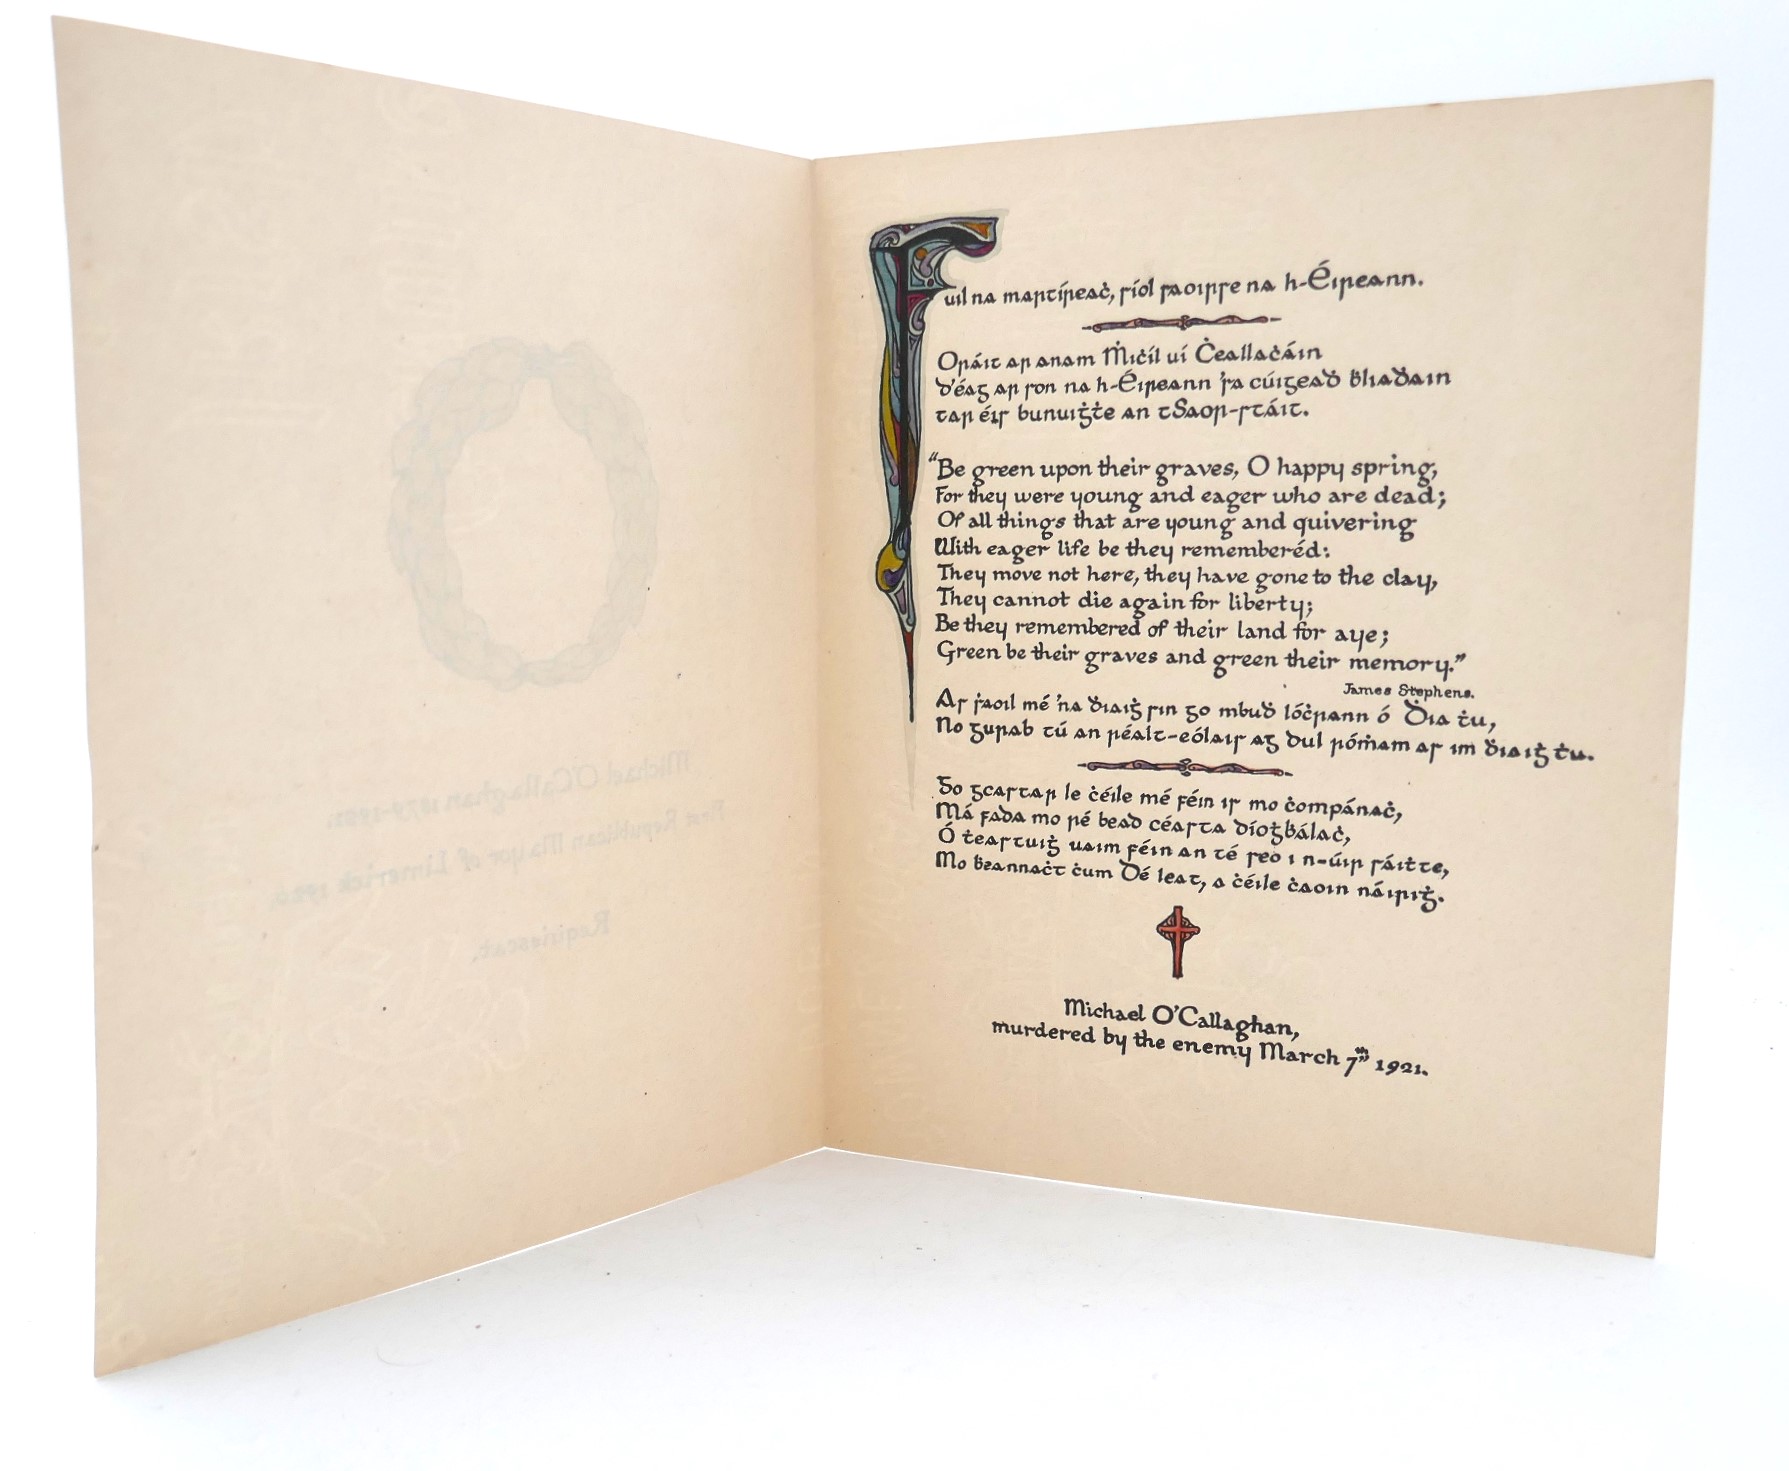 Fuil na martíreaċ, síol saoirse na h-Éireann.
Oráit ar anam Ṁiċíl uí Ċeallaċáin
d'éag ar son na h-Éireann 'sa cúigeaḋ ḃliaḋain
tar éis bunuiġṫe an tSaor-stáit.
"Be green upon their graves, O happy spring,
For they were young and eager who are dead;
Of all things that are young and quivering
With eager life be they rememberéd:
They move not here, they have gone to the clay,
They cannot die again for liberty;
Be they remembered of their land for aye;
Green be their graves and green their memory."
James Stephens.
As ṡaoil mé 'na ḋiaiġ sin go mbuḋ lóċrann ó Ḋia ṫu,
No gurab tú an réalt-eólais ag dul róṁam as im ḋiaiġ ṫu.
Go gcastar le ċéile mé féin is mo ċompánaċ,
Má fada mo ré bead céasta díoġḃálaċ,
Ó ṫeastuiġ uaim féin an té seo i n-úir sáiṫte,
Mo ḃeannaċt ċum Dé leat, a ċéile ċaoin náiriġ.
Michael O'Callaghan,
murdered by the enemy March 7th 1921.
Michael O'Callaghan 1879-1921.
First Republican Mayor of Limerick 1920.
Requiescat.